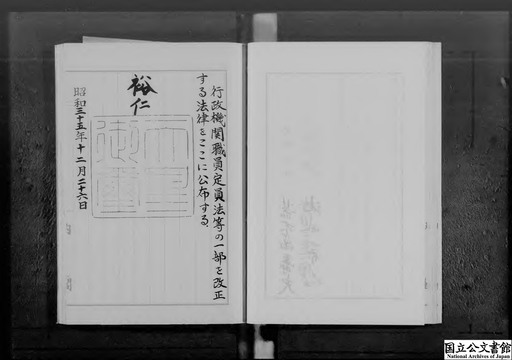 行政機関職員定員法等の一部を改正
する法律をここに公布する
裕仁
天皇御璽
昭和三十五年十二月二十六日
国立公文書館
National Archives of Japan